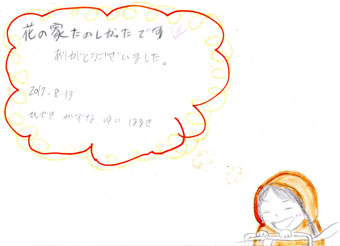 花の家たのしかたです
ありがとうございました。
2017.8.13
ひでき かずな ゆい はるき